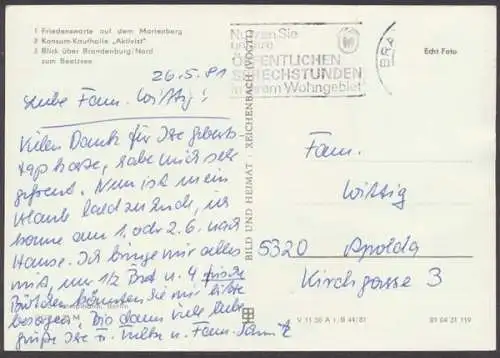 1 Friedenswarte auf dem Marienberg
2 Konsum-Kaufhalle „Aktivist"
3 Blick über Brandenburg/Nord
zum Beetzsee
26.5.81
Liebe Fam. Wittig!
Vielen Dank für Ihre Geburts-
tagskarte, habe mich sehr
gefreut. Nun ist mein
Urlaub bald zu Ende, ich
komme am 1. oder 2.6. nach
Hause. Ich bringe mir alles
mit, nur 1/2 Brot u. 4 frische
Brötchen könnten Sie mir bitte
besorgen. Bis dann viele liebe
Grüße Ihre Fr. u. Fam.
BILD UND HEIMAT · REICHENBACH (VOGTL)
Nutzen Sie
unsere
ÖFFENTLICHEN
SPRECHSTUNDEN
in Ihrem Wohngebiet
BRA
Echt Foto
Fam.
Wittig
5320 Apolda
Kirchgasse 3
V 11 50 A 1 B 44/81
01 04 21 119